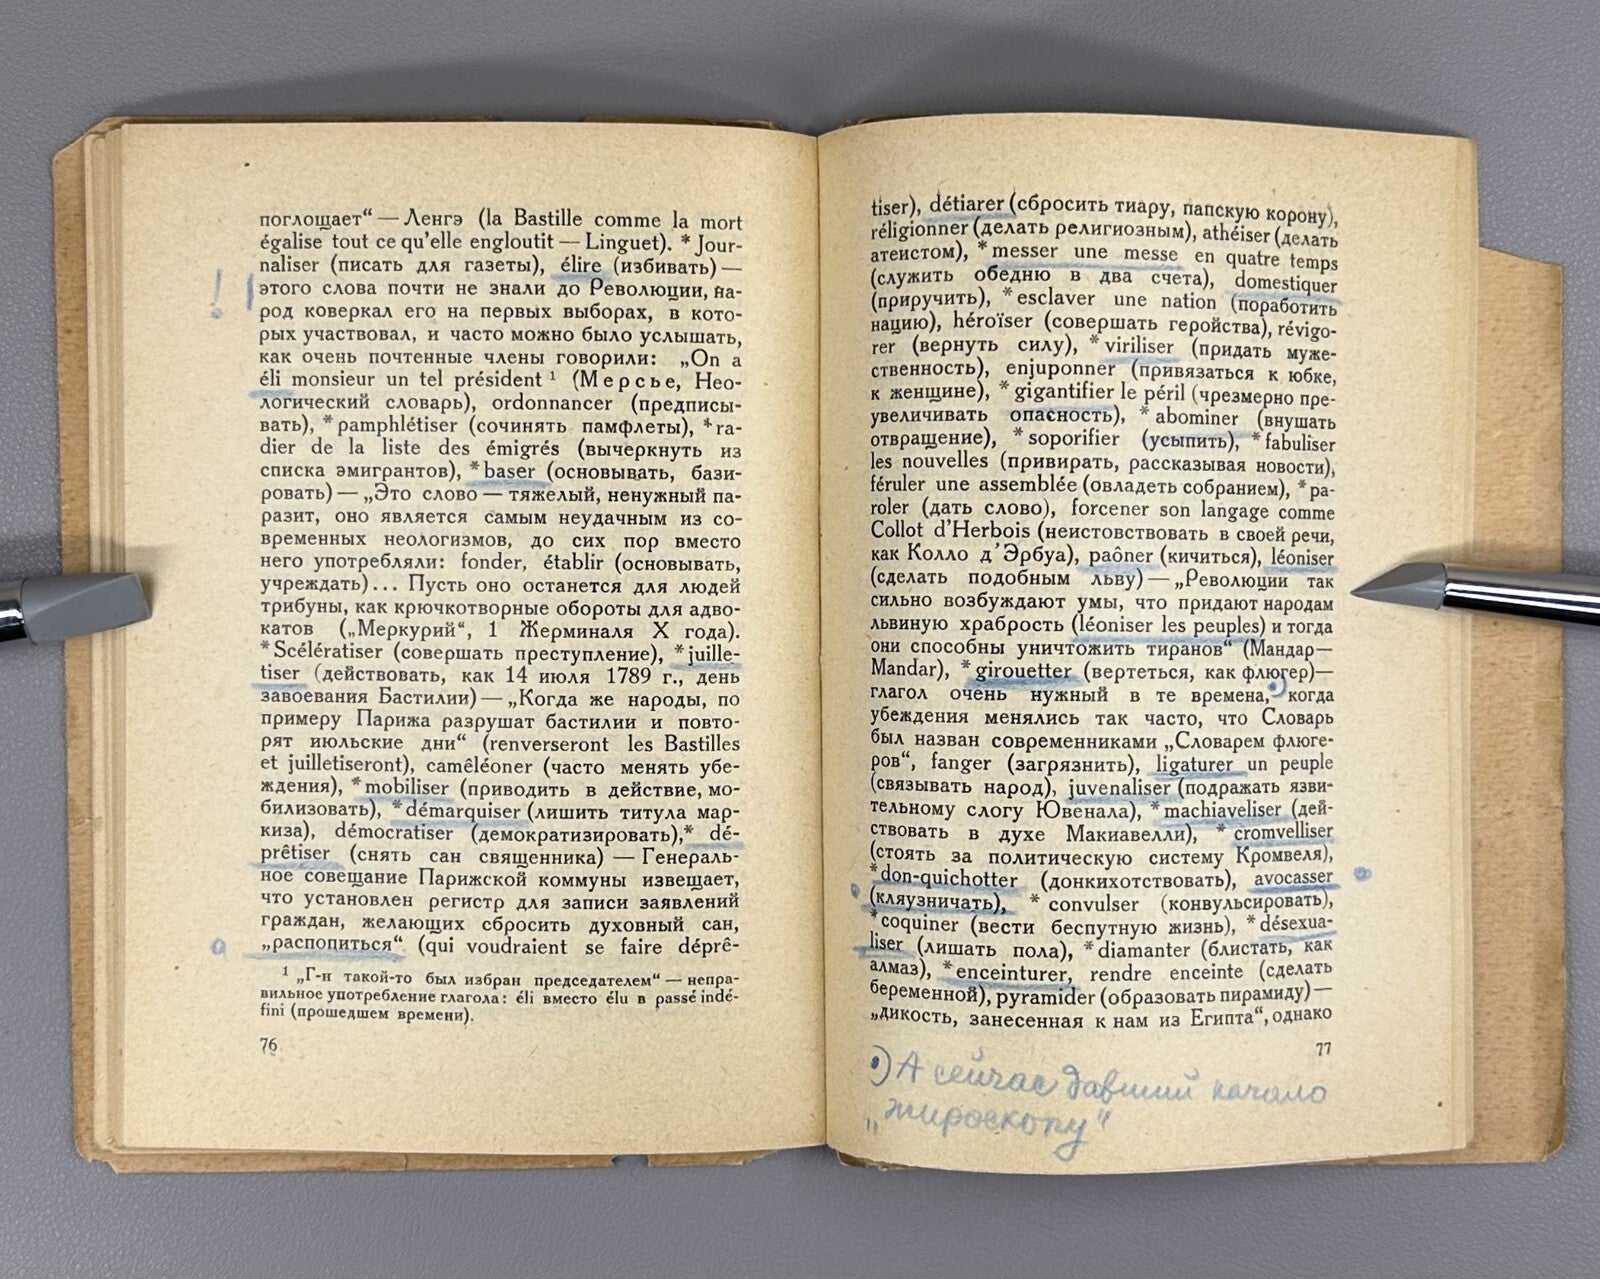 поглощает“ — Ленгэ (la Bastille comme la mort
égalise tout ce qu’elle engloutit — Linguet). *Jour-
naliser (писать для газеты), élire (избивать) —
этого слова почти не знали до Революции, на-
род коверкал его на первых выборах, в кото-
рых участвовал, и часто можно было услышать,
как очень почтенные члены говорили: „On a
éli monsieur un tel président ¹ (Мерсье, Нео-
логический словарь), ordonnancer (предписы-
вать), *pamphlétiser (сочинять памфлеты), *ra-
dier de la liste des émigrés (вычеркнуть из
списка эмигрантов), *baser (основывать, бази-
ровать) — „Это слово — тяжелый, ненужный па-
разит, оно является самым неудачным из со-
временных неологизмов, до сих пор вместо
него употребляли: fonder, établir (основывать,
учреждать)... Пусть оно останется для людей
трибуны, как крючкотворные обороты для адво-
катов („Меркурий“, 1 Жерминаля X года).
*Scélératiser (совершать преступление), *juille-
tiser (действовать, как 14 июля 1789 г., день
завоевания Бастилии) — „Когда же народы, по
примеру Парижа разрушат бастилии и повто-
рят июльские дни“ (renverseront les Bastilles
et juilletiseront), camêléoner (часто менять убе-
ждения), *mobiliser (приводить в действие, мо-
билизовать), *démarquiser (лишить титула мар-
киза), démocratiser (демократизировать),* dé-
prêtiser (снять сан священника) — Генераль-
ное совещание Парижской коммуны извещает,
что установлен регистр для записи заявлений
граждан, желающих сбросить духовный сан,
„распопиться“ (qui voudraient se faire dépré-
¹ „Г-н такой-то был избран председателем“ — непра-
вильное употребление глагола: éli вместо élu в passé indé-
fini (прошедшем времени).
76
tiser), détiarer (сбросить тиару, папскую корону),
réligionner (делать религиозным), athéiser (делать
атеистом), *messer une messe en quatre temps
(служить обедню в два счета), domestiquer
(приручить), *esclaver une nation (поработить
нацию), héroïser (совершать геройства), révigo-
rer (вернуть силу), *viriliser (придать муже-
ственность), enjuponner (привязаться к юбке,
к женщине), *gigantifier le péril (чрезмерно пре-
увеличивать опасность), *abominer (внушать
отвращение), *soporifier (усыпить), *fabuliser
les nouvelles (привирать, рассказывая новости),
féruler une assemblée (овладеть собранием), *pa-
roler (дать слово), forcener son langage comme
Collot d’Herbois (неистовствовать в своей речи,
как Колло д’Эрбуа), paôner (кичиться), léoniser
(сделать подобным льву) — „Революции так
сильно возбуждают умы, что придают народам
львиную храбрость (léoniser les peuples) и тогда
они способны уничтожить тиранов“ (Мандар—
Mandar), *girouetter (вертеться, как флюгер)—
глагол очень нужный в те времена, когда
убеждения менялись так часто, что Словарь
был назван современниками „Словарем флюге-
ров“, fanger (загрязнить), ligaturer un peuple
(связывать народ), juvenaliser (подражать язви-
тельному слогу Ювенала), *machiaveliser (дей-
ствовать в духе Макиавелли), *cromvelliser
(стоять за политическую систему Кромвеля),
*don-quichotter (донкихотствовать), avocasser
(кляузничать), *convulser (конвульсировать),
*coquiner (вести беспутную жизнь), *désexua-
liser (лишать пола), *diamanter (блистать, как
алмаз), *enceinturer, rendre enceinte (сделать
беременной), pyramider (образовать пирамиду)—
„дикость, занесенная к нам из Египта“, однако
77
•) А сейчас давший начало
„жироскопу“